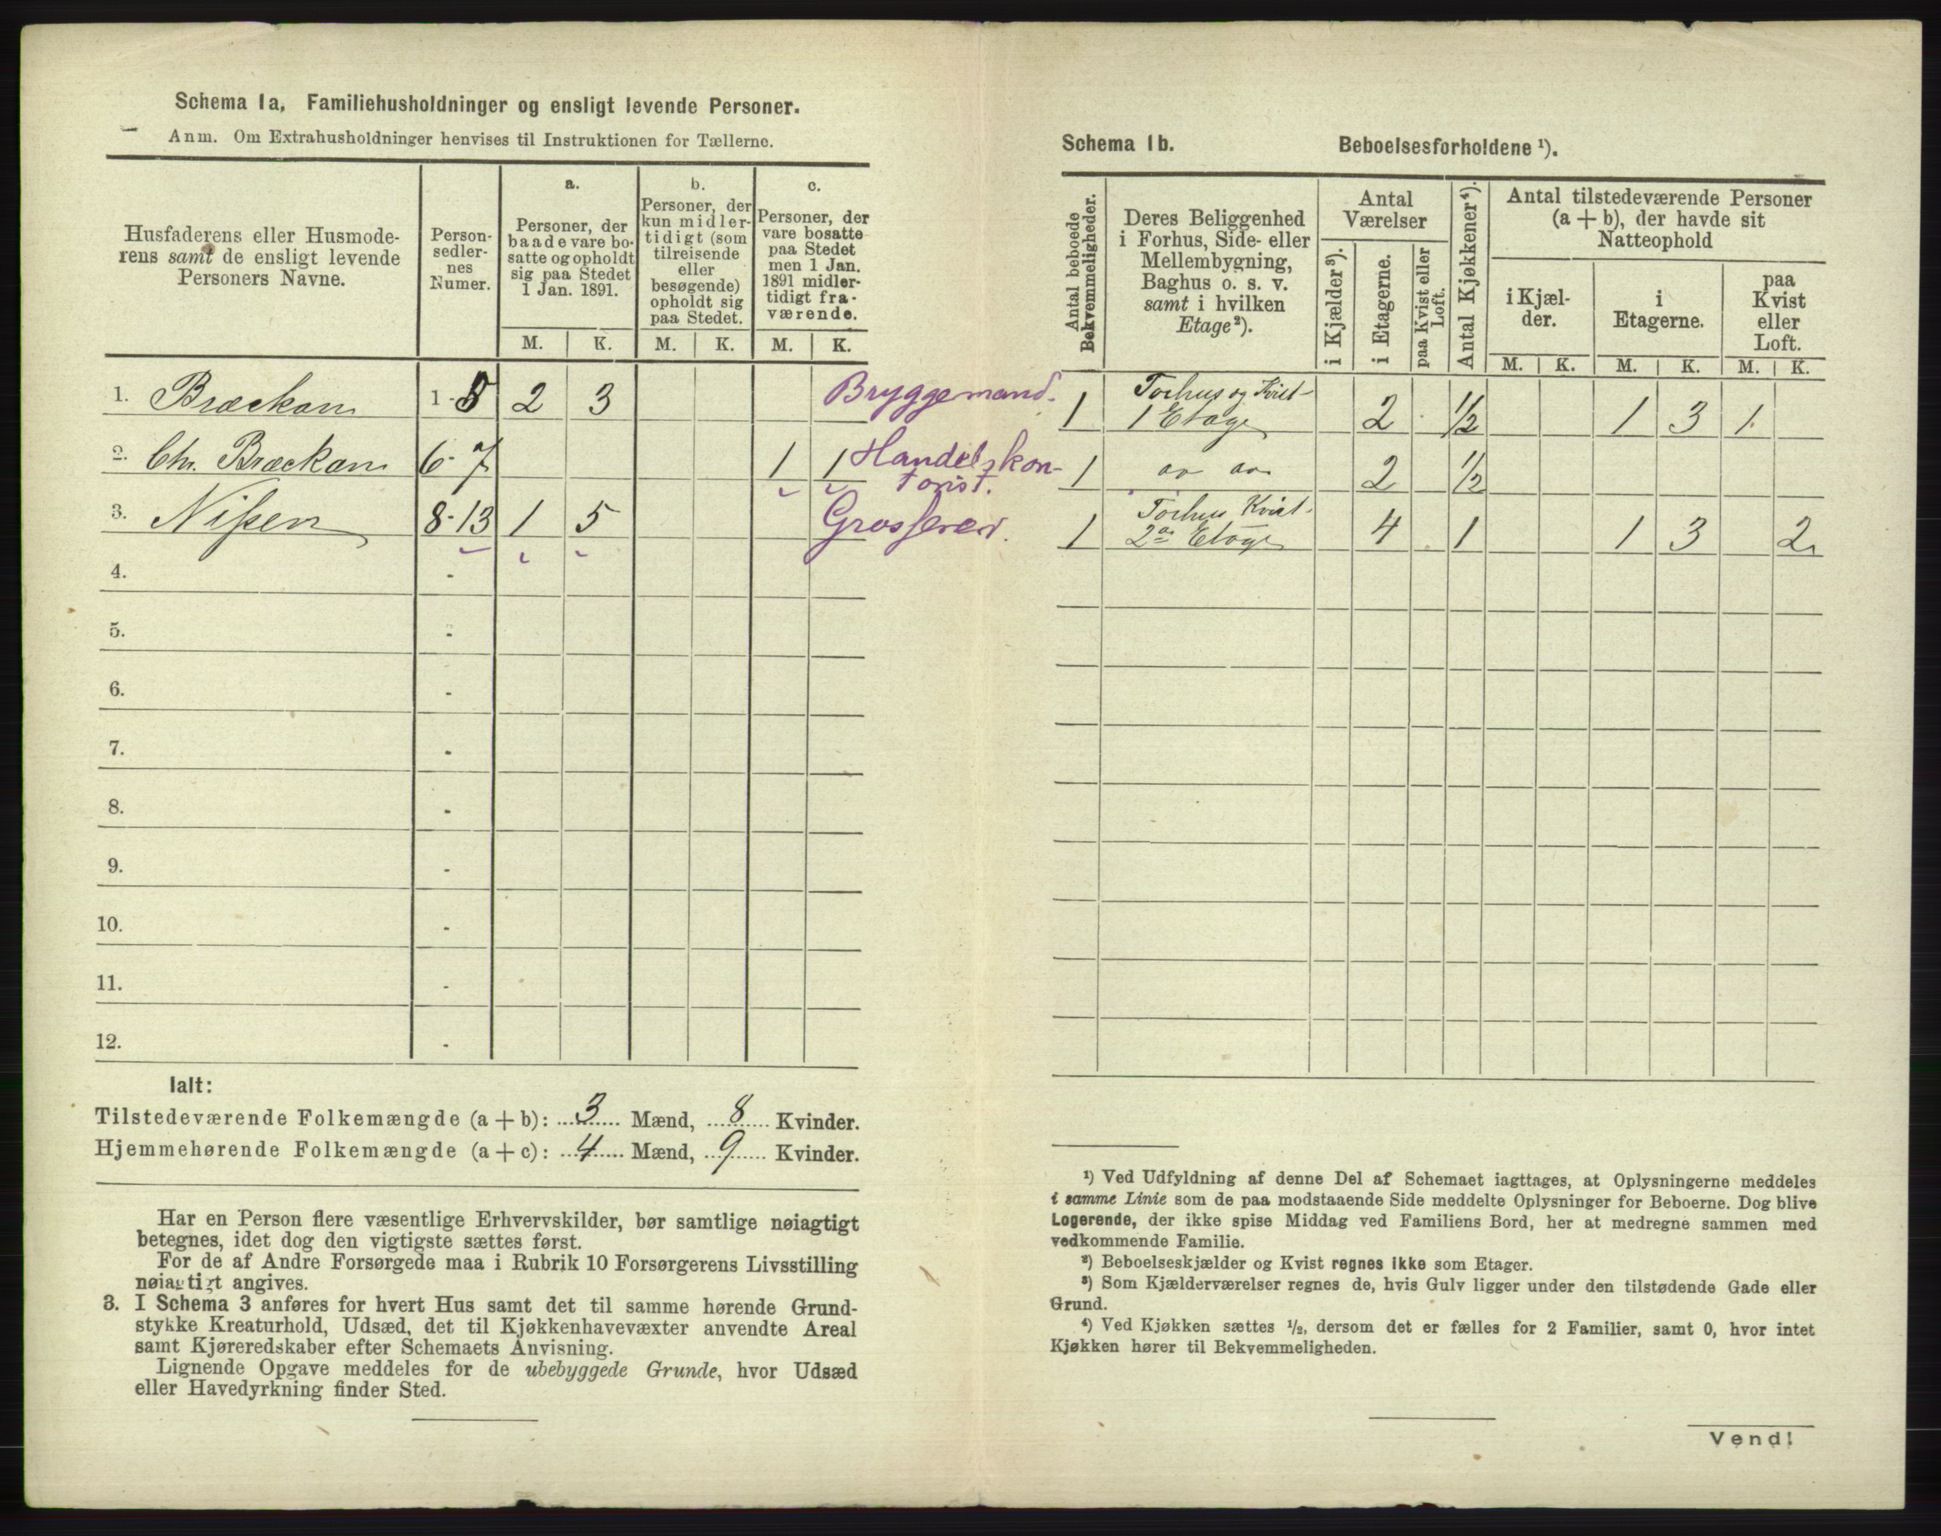 Schema 1a, Familiehusholdninger og ensligt levende Personer.
Anm. Om Extrahusholdninger henvises til Instruktionen for Tællerne.
Husfaderens eller Husmode-
rens samt de ensligt levende
Personers Navne.
Person-
sedler-
nes
Numer.
a.
Personer, der
baade vare bo-
satte og opholdt
sig paa Stedet
1 Jan. 1891.
b.
Personer, der
kun midler-
tidigt (som
tilreisende
eller
besøgende)
opholdt sig
paa Stedet.
c.
Personer, der
vare bosatte
paa Stedet
men 1 Jan.
1891 midler-
tidigt fra-
værende.
M. K. M. K. M. K.
1. Brækan 1-5 2 3 Bryggemand.
2. Chr. Brækan 6-7 1 1 Handelskon-
torist.
3. Nissen 8-13 1 5 Grosserer.
4. -
5. -
6. -
7. -
8. -
9. -
10. -
11. -
12. -
Ialt:
Tilstedeværende Folkemængde (a+b): 3 Mænd, 8 Kvinder.
Hjemmehørende Folkemængde (a+c): 4 Mænd, 9 Kvinder.
Har en Person flere væsentlige Erhvervskilder, bør samtlige nøiagtigt
betegnes, idet dog den vigtigste sættes først.
For de af Andre Forsørgede maa i Rubrik 10 Forsørgerens Livsstilling
nøiagtigt angives.
3. I Schema 3 anføres for hvert Hus samt det til samme hørende Grund-
stykke Kreaturhold, Udsæd, det til Kjøkkenhavevæxter anvendte Areal
samt Kjøreredskaber efter Schemaets Anvisning.
Lignende Opgave meddeles for de ubebyggede Grunde, hvor Udsæd
eller Havedyrkning finder Sted.
Schema 1b. Beboelsesforholdene ¹).
Antal beboede
Bekvemmeligheder.
Deres Beliggenhed
i Forhus, Side- eller
Mellembygning,
Baghus o. s. v.
samt i hvilken
Etage²).
Antal
Værelser
i Kjælder³).
i Etagerne.
paa Kvist eller
Loft.
Antal Kjøkkener⁴).
Antal tilstedeværende Personer
(a+b), der havde sit
Natteophold
i Kjæl-
der.
i
Etagerne.
paa
Kvist
eller
Loft.
M. K. M. K. M. K.
1 Forhus og Kvist
1 Etage 2 1/2 1 3 1
1 " " 2 1/2
1 Forhus Kvist
2den Etage 4 1 1 3 2
¹) Ved Udfyldning af denne Del af Schemaet iagttages, at Oplysningerne meddeles
i samme Linie som de paa modstaaende Side meddelte Oplysninger for Beboerne. Dog blive
Logerende, der ikke spise Middag ved Familiens Bord, her at medregne sammen med
vedkommende Familie.
²) Beboelseskjælder og Kvist regnes ikke som Etager.
³) Som Kjælderværelser regnes de, hvis Gulv ligger under den tilstødende Gade eller
Grund.
⁴) Ved Kjøkken sættes ½, dersom det er fælles for 2 Familier, samt 0, hvor intet
Kjøkken hører til Bekvemmeligheden.
Vend!